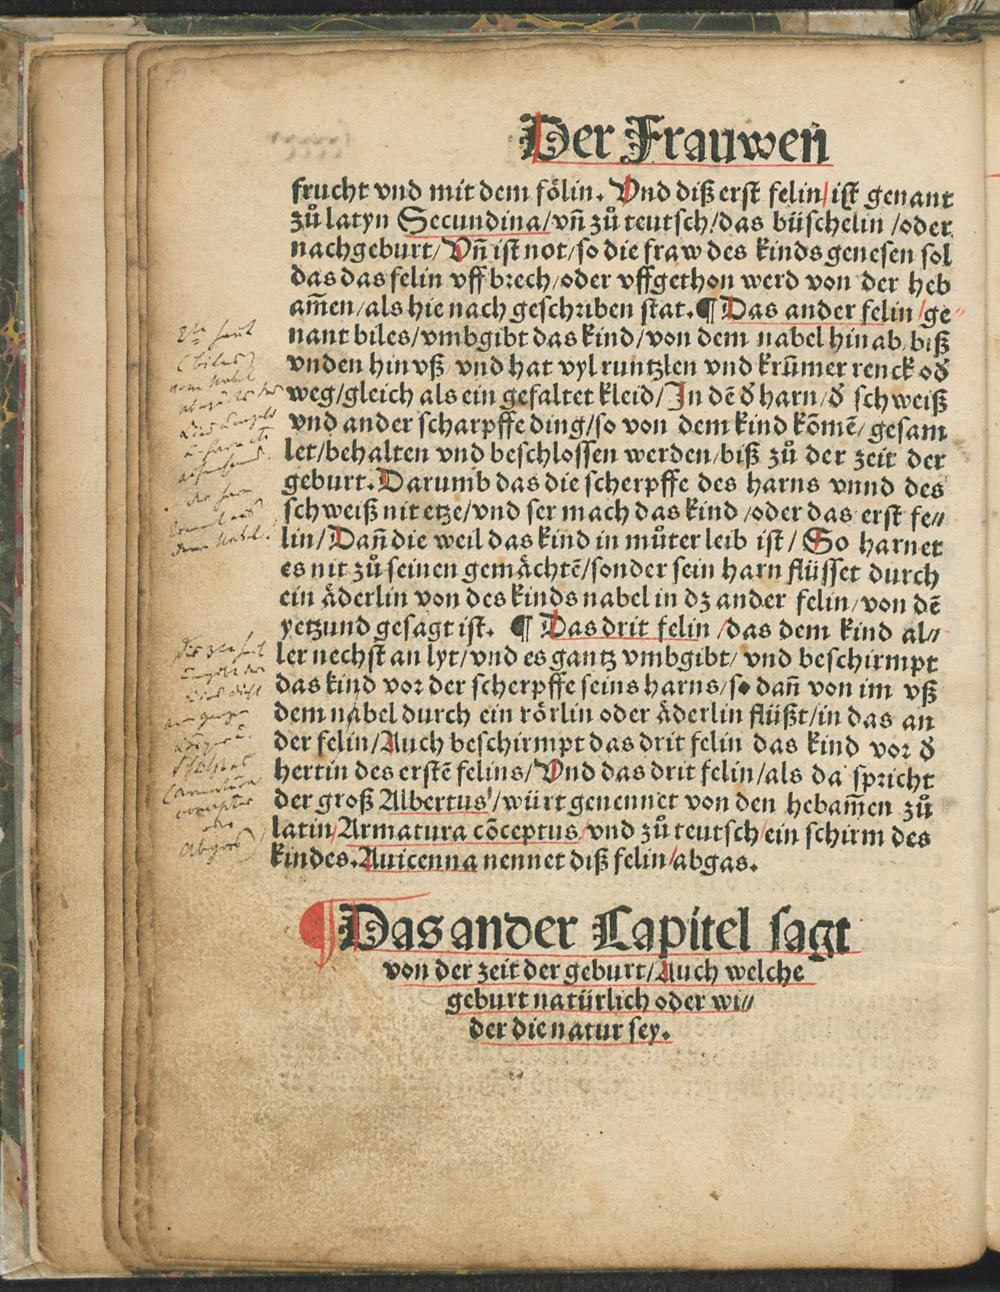 Der Frauwen
frucht vnd mit dem fölin. Vnd diß erst felin/ist genant
zů latyn Secundina/vñ zů teutsch/das büschelin /oder
nachgeburt/Vñ ist not/so die fraw des kinds genesen sol
das das felin vff brech/oder vffgethon werd von der heb
am̃en/als hie nach geschriben stat.¶ Das ander felin/ge
nant biles/vmbgibt das kind/von dem nabel hin ab biß
vnden hin vß vnd hat vyl runtzlen vnd krũmer renck oď
weg/gleich als ein gefaltet kleid/In dẽ ď harn/ď schweiß
vnd ander scharpffe ding/so von dem kind kõmẽ/gesam
let/behalten vnd beschlossen werden/biß zů der zeit der
geburt.Darumb das die scherpffe des harns vnnd des
schweiß nit etze/vnd ser mach das kind /oder das erst fe⸗
lin/Dañ die weil das kind in můter leib ist/ So harnet
es nit zů seinen gemächtẽ/sonder sein harn flüsset durch
ein äderlin von des kinds nabel in dz ander felin/von dẽ
yetzund gesagt ist. ¶ Das drit felin /das dem kind al⸗
ler nechst an lyt/vnd es gantz vmbgibt/ vnd beschirmpt
das kind vor der scherpffe seins harns/so dañ von im vß
dem nabel durch ein rörlin oder äderlin flüßt/in das an
der felin/Auch beschirmpt das drit felin das kind vor ď
hertin des erstẽ felins/Vnd das drit felin/als da spricht
der groß Albertus/würt genennet von den hebam̃en zů
latin/Armatura cõceptus/vnd zů teutsch/ein schirm des
kindes.Auicenna nennet diß felin/abgas.
¶Das ander Capitel sagt
von der zeit der geburt/Auch welche
geburt natürlich oder wi⸗
der die natur sey.